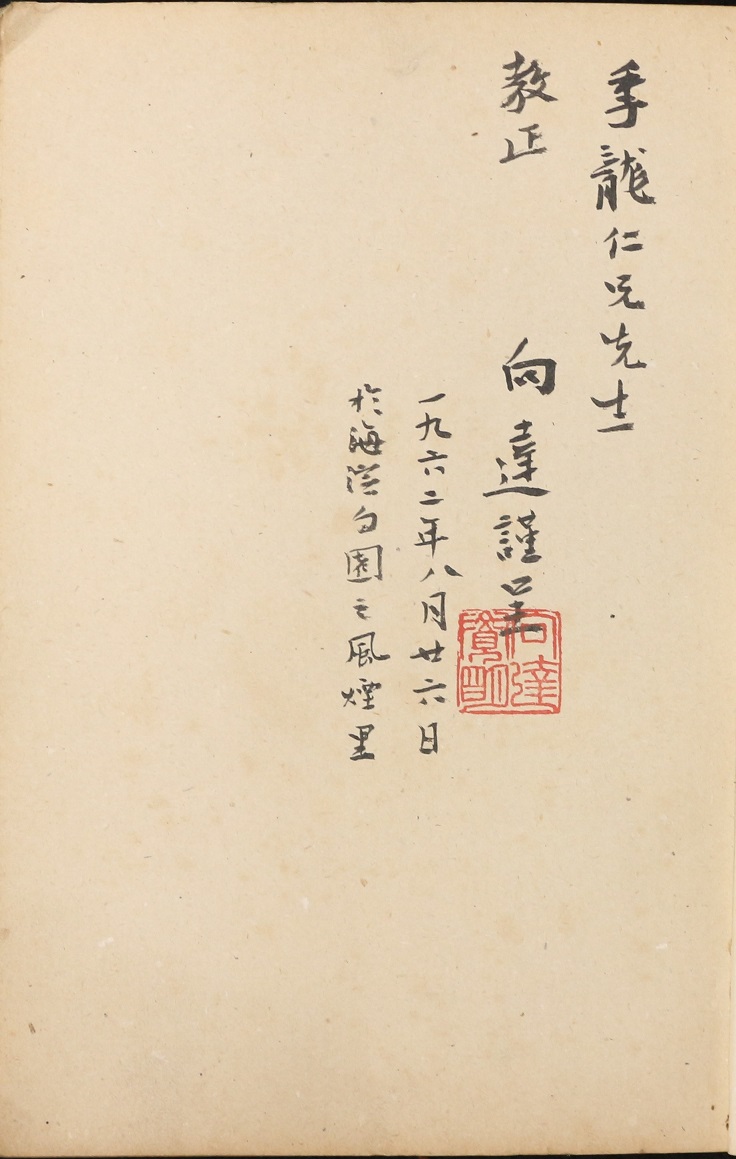 季龍仁兄先生
教正
向達謹呈
一九六二年八月廿六日
於海淀勺園之風煙里
向達
覺明